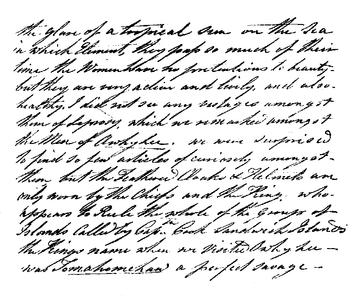 the glare of a tropical sun on the Sea
in which Element, they pass so much of their
time the Women have no pretentions to beauty.
but they are very active and lively, and also
healthy, I did not see any vestages amongst
them of Leprosy, which we remarked amongst
the Men of Owhyhee. we were surprised
to find so few articles of curiosity amongst
them but the Feathered Cloaks & Helmets are
only worn by the Chiefs and the King. who
appears to Rule the whole of the Groups of
Islands Called by Capn. Cook Sandwich Islands
the Kings name when we visited Owhyhee —
was Tomahomehaw a perfect savage —